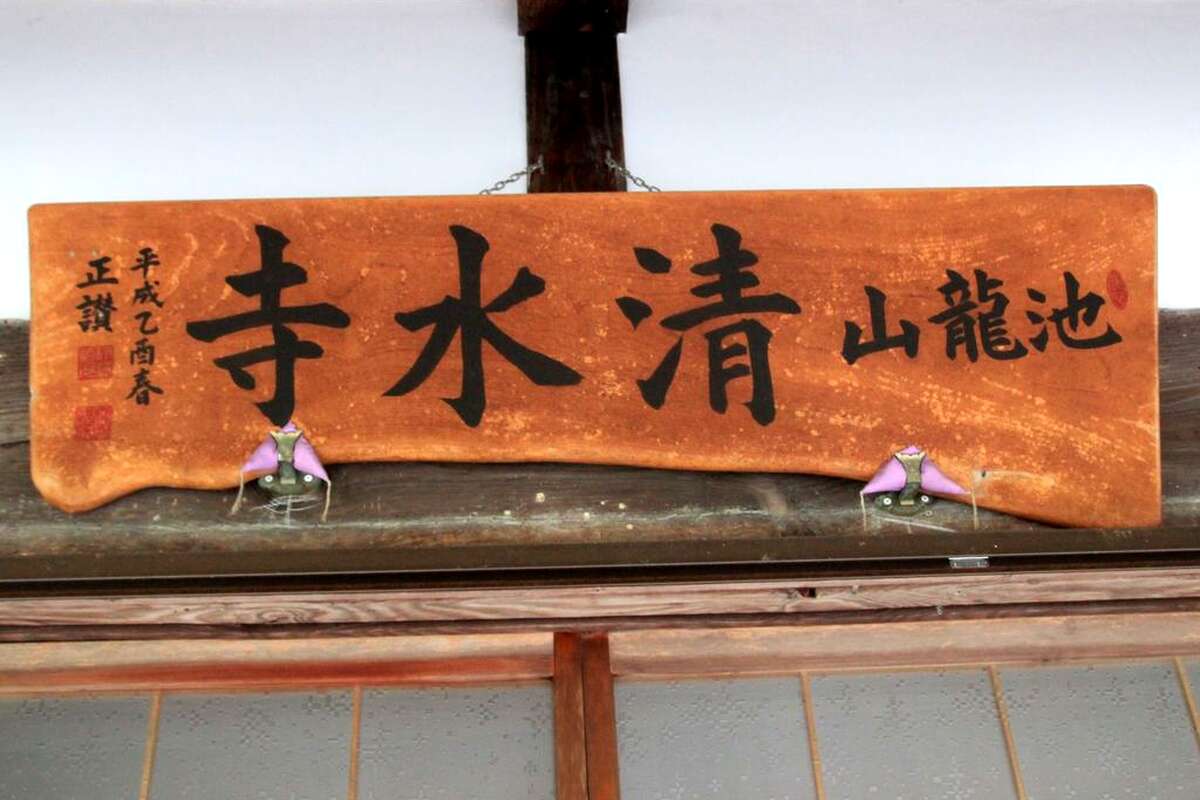 池龍山
清水寺
平成乙酉春
正讃